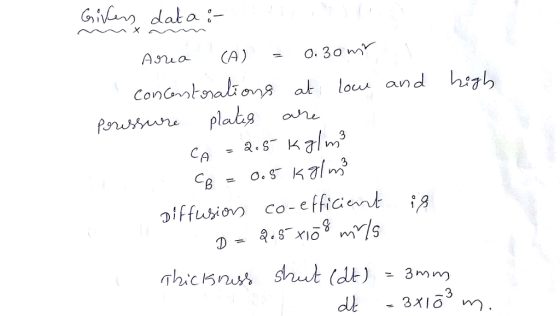 Given data :-
Area (A) = 0.30 m²
Concentrations at low and high
pressure plates are
C_A = 2.5 Kg/m³
C_B = 0.5 Kg/m³
Diffusion co-efficient is
D = 2.5 × 10⁻⁸ m²/s
Thickness sheet (dt) = 3mm
dt = 3×10⁻³ m.